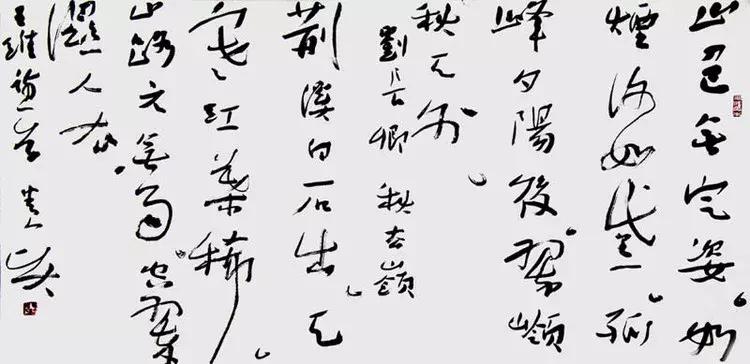 山色無定姿如
煙復如黛孤
峰夕陽後翠嶺
秋天外
劉長卿 秋雲嶺
荊溪白石出天
寒紅葉稀
山路元無雨空翠
濕人衣
王維